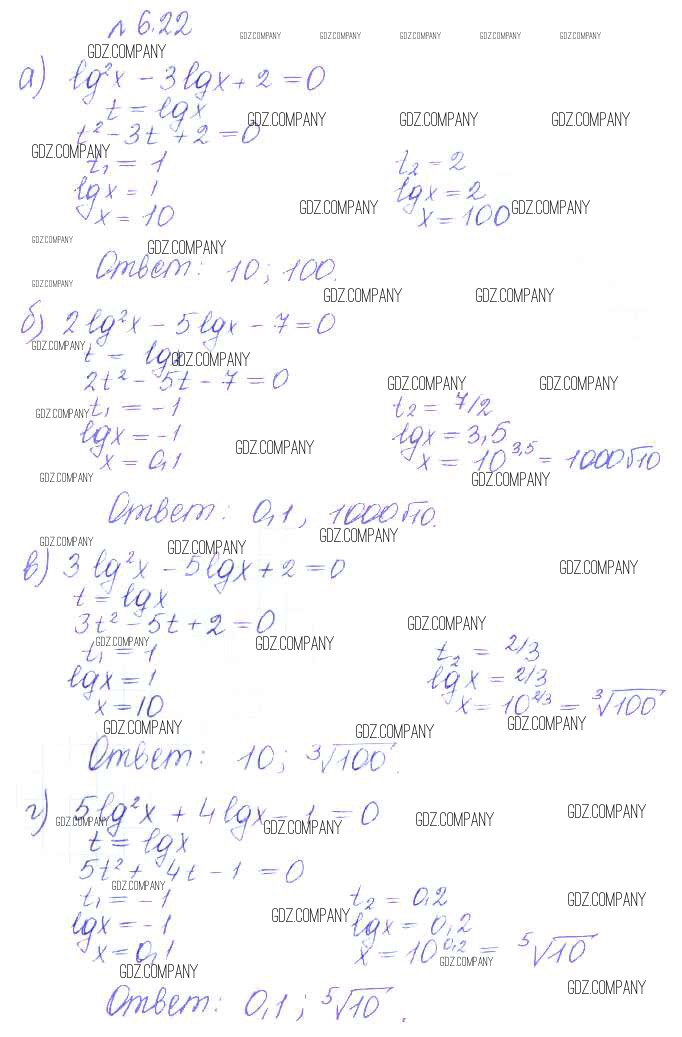 № 6.22
GDZ.COMPANY GDZ.COMPANY GDZ.COMPANY GDZ.COMPANY GDZ.COMPANY
GDZ.COMPANY
а) lg²x - 3lgx + 2 = 0
t = lgx
GDZ.COMPANY GDZ.COMPANY GDZ.COMPANY
t² - 3t + 2 = 0
GDZ.COMPANY
t₁ = 1 t₂ = 2
lgx = 1 lgx = 2
GDZ.COMPANY GDZ.COMPANY
x = 10 x = 100
GDZ.COMPANY GDZ.COMPANY
Ответ: 10; 100.
GDZ.COMPANY GDZ.COMPANY GDZ.COMPANY
б) 2lg²x - 5lgx - 7 = 0
GDZ.COMPANY
t = lgx GDZ.COMPANY
2t² - 5t - 7 = 0 GDZ.COMPANY GDZ.COMPANY
GDZ.COMPANY t₁ = -1 t₂ = 7/2
lgx = -1 lgx = 3,5
GDZ.COMPANY
x = 0,1 x = 10^3,5 = 1000√10
GDZ.COMPANY GDZ.COMPANY
Ответ: 0,1, 1000√10.
GDZ.COMPANY GDZ.COMPANY GDZ.COMPANY
в) 3lg²x - 5lgx + 2 = 0 GDZ.COMPANY
t = lgx
3t² - 5t + 2 = 0 GDZ.COMPANY
GDZ.COMPANY GDZ.COMPANY
t₁ = 1 t₂ = 2/3
lgx = 1 lgx = 2/3
x = 10 x = 10^2/3 = ³√100
GDZ.COMPANY GDZ.COMPANY GDZ.COMPANY
Ответ: 10; ³√100.
г) 5lg²x + 4lgx - 1 = 0
GDZ.COMPANY GDZ.COMPANY GDZ.COMPANY GDZ.COMPANY
t = lgx
5t² + 4t - 1 = 0
GDZ.COMPANY
t₁ = -1 t₂ = 0,2 GDZ.COMPANY
GDZ.COMPANY
lgx = -1 lgx = 0,2
x = 0,1 x = 10^0,2 = ⁵√10
GDZ.COMPANY GDZ.COMPANY
GDZ.COMPANY
Ответ: 0,1; ⁵√10.